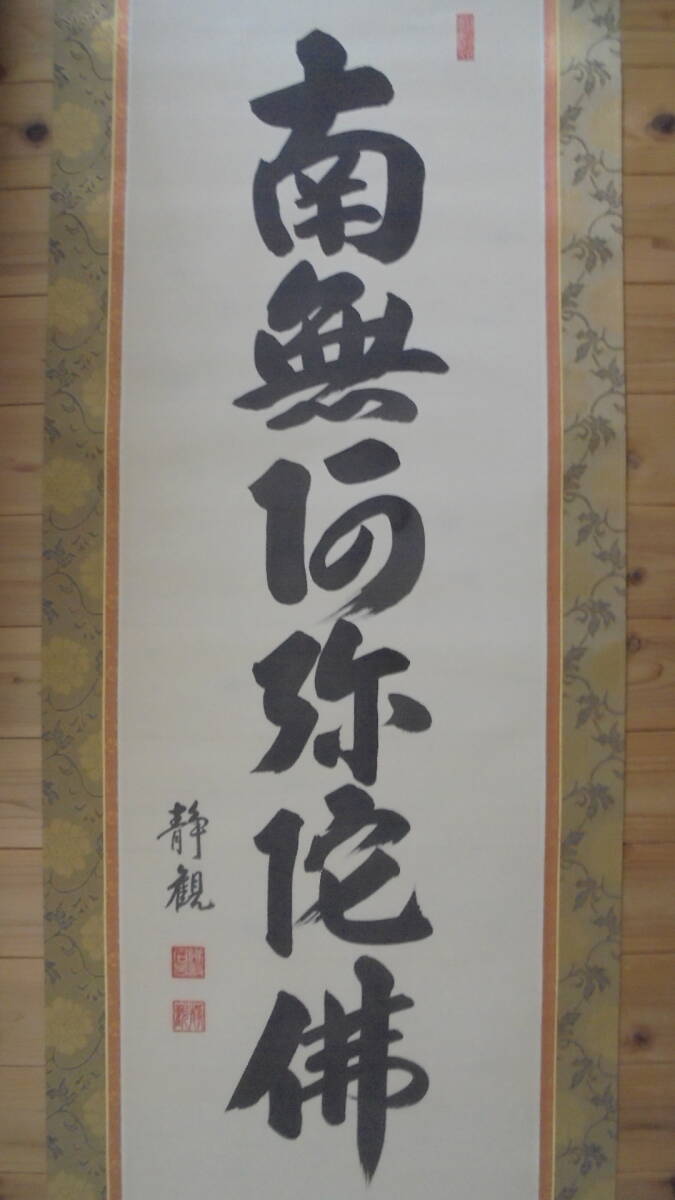 南無阿弥陀佛
静観